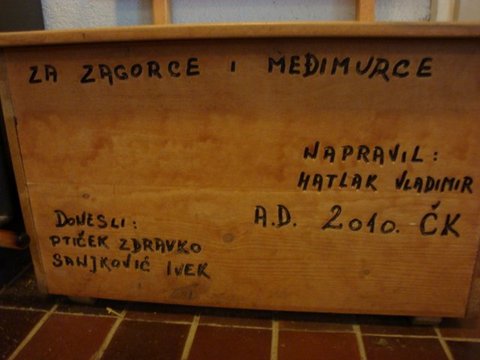 ZA ZAGORCE I MEĐIMURCE
NAPRAVIL:
HATLAK VLADIMIR
A.D. 2010. ČK
DONESLI:
PTIČEK ZDRAVKO
SANJKOVIĆ IVEK